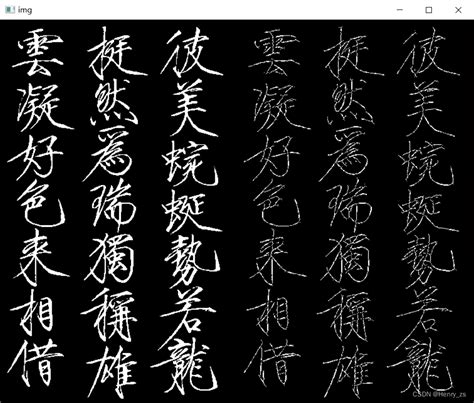 img
彼美蜿蜒勢若龍
挺然爲瑞獨稱雄
雲凝好色来相借
彼美蜿蜒勢若龍
挺然爲瑞獨稱雄
雲凝好色来相借
CSDN @Henry_zs